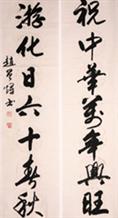 祝中華萬年興旺
游化日六十春秋
趙